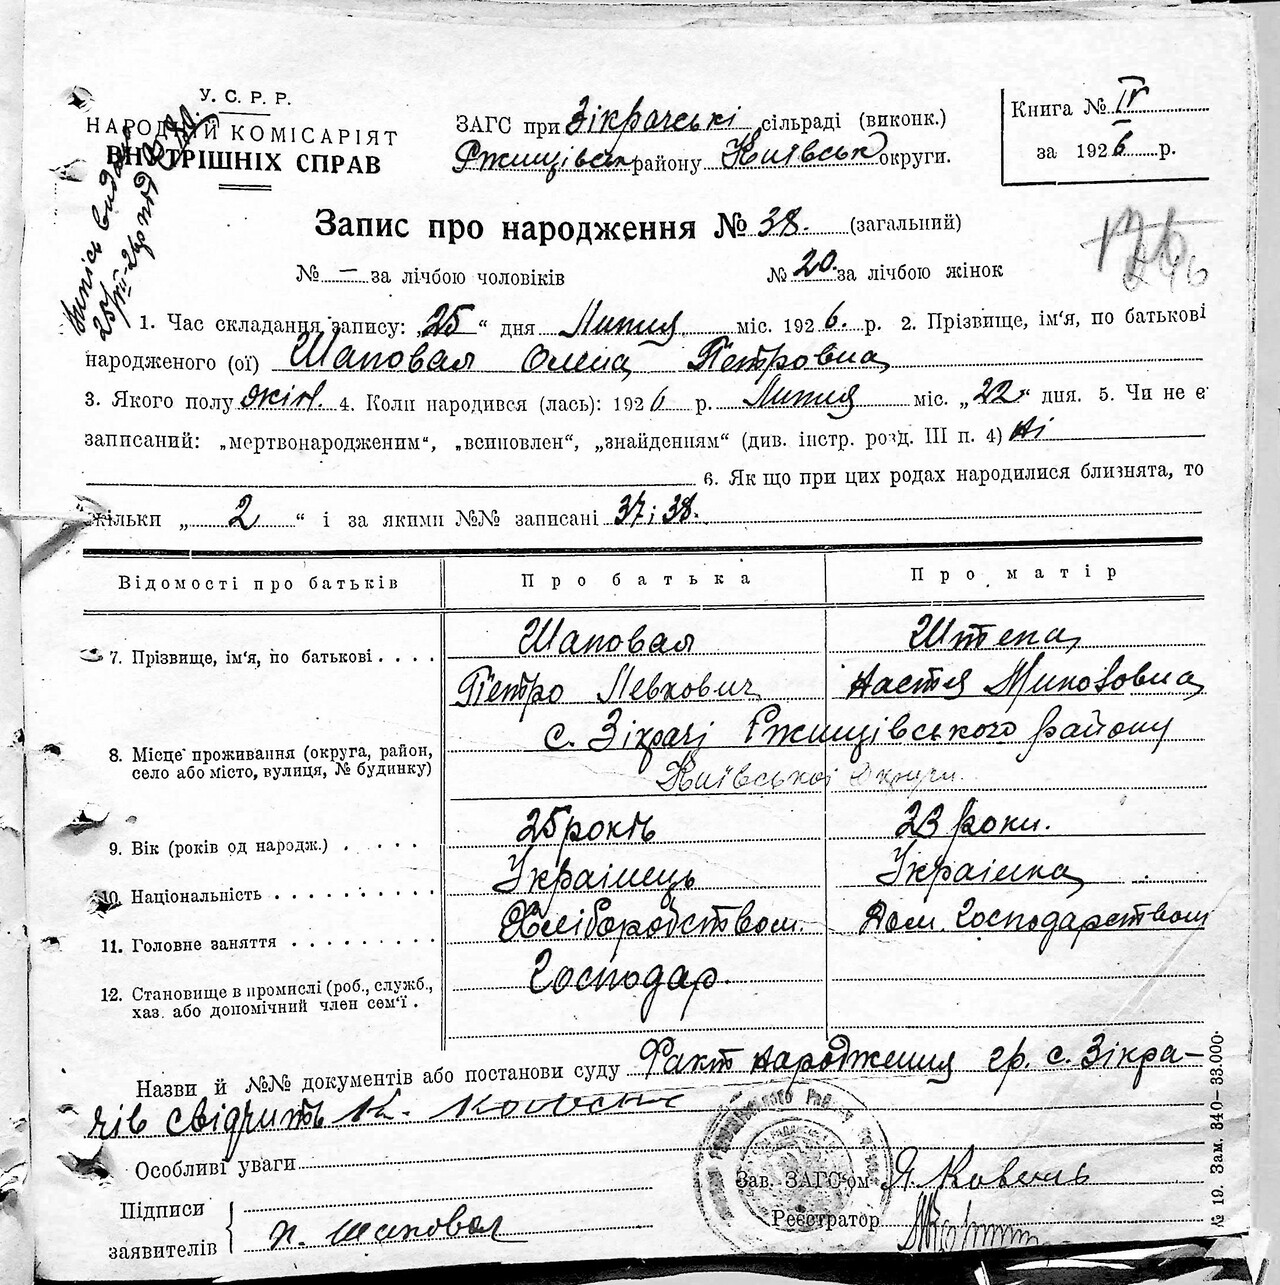 У. С. Р. Р.
НАРОДНІЙ КОМІСАРІЯТ
ВНУТРІШНІХ СПРАВ
ЗАГС при Зікрачські сільраді (виконк.)
Ржищівськ району Київськ округи.
Книга № IV
за 1926 р.
Запис про народження № 38. (загальний)
№ — за лічбою чоловіків № 20. за лічбою жінок
1. Час складання запису: „25“ дня Липня міс. 1926. р. 2. Прізвище, ім'я, по батькові
народженого (ої) Шаповал Олена Петровна
3. Якого полу жін. 4. Коли народився (лась): 1926 р. Липня міс. „22“ дня. 5. Чи не є
записаний: „мертвонародженим“, „всиновлен“, „знайденням“ (див. інстр. розд. III п. 4) ні
6. Як що при цих родах народилися близнята, то
скільки „ 2 “ і за якими №№ записані 37 і 38.
Відомості про батьків Про батька Про матір
7. Прізвище, ім'я, по батькові . . . . Шаповал Штепа
Петро Левкович Настя
8. Місце проживання (округа, район, с. Зікрачі Ржищівського району
село або місто, вулиця, № будинку) Київської Округи.
9. Вік (років од народж.) . . . . . 25 років 23 роки.
10. Національність . . . . . . . . Українець Українка
11. Головне заняття . . . . . . . . Хліборобством. Дом. Господарством
12. Становище в промислі (роб., служб., Господар.
хаз. або допомічний член сем'ї .
Назви й №№ документів або постанови суду Факт народження гр. с. Зікра-
чів свідчить К.
Особливі уваги
Зав. ЗАГС'ом Я. Коваль
Підписи
Реєстратор
заявителів П. Шаповал
№ 19. Зам. 840—33.000.